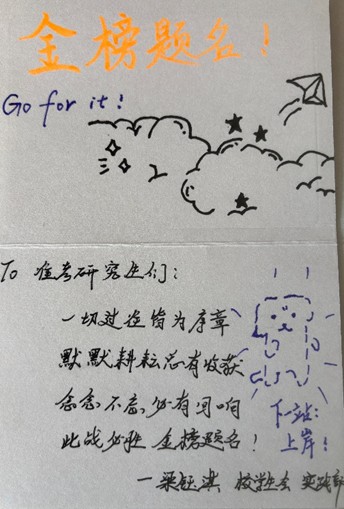 金榜题名！
Go for it！
To 准考研究生们：
一切过往皆为序章
默默耕耘总有收获
念念不忘，必有回响
此战必胜 金榜题名！
下一站：
上岸！
—梁钰淇 校学生会 实践部